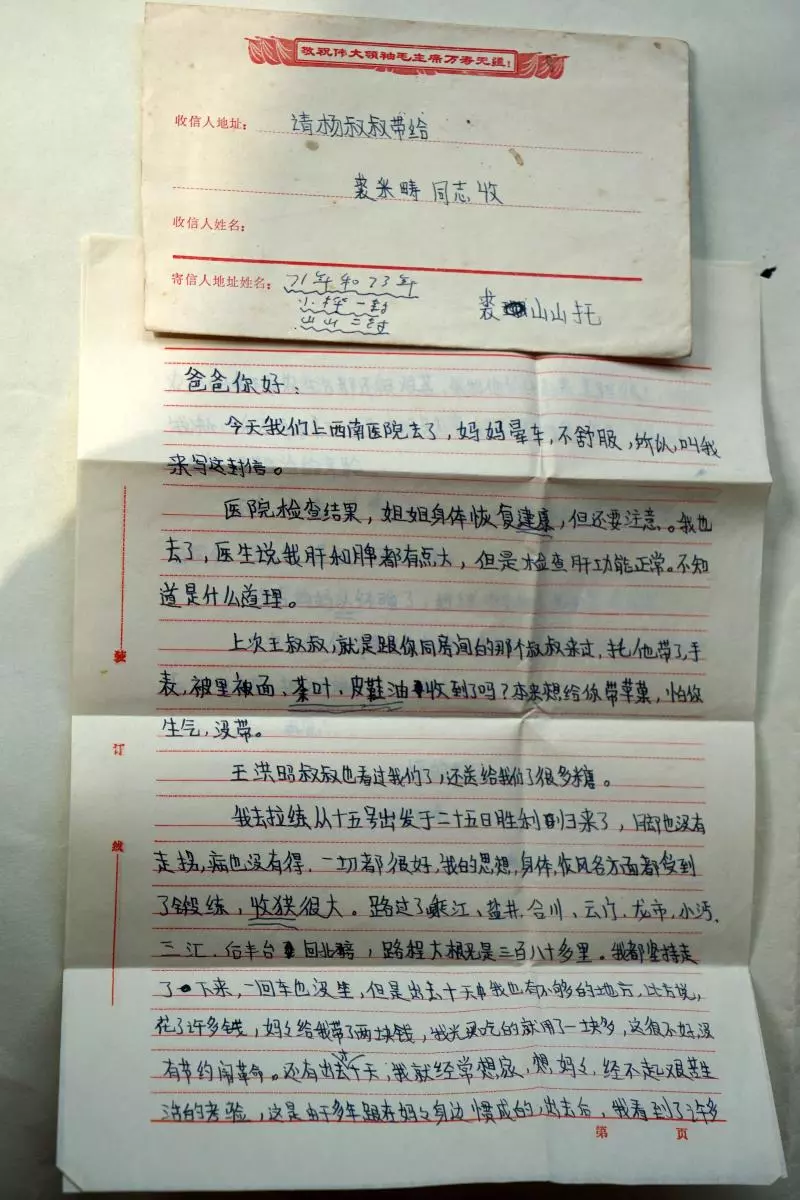 敬祝伟大领袖毛主席万寿无疆!
收信人地址: 请杨叔叔带给
裘米畴 同志收
收信人姓名:
寄信人地址姓名: 71年和73年
小桦一封
山山三封
裘山山托
爸爸你好:
今天我们上西南医院去了,妈妈晕车,不舒服,所以,叫我
来写这封信。
医院检查结果,姐姐身体恢复建康,但还要注意。我也
去了,医生说我肝和脾都有点大,但是检查肝功能正常。不知
道是什么道理。
上次王叔叔,就是跟你同房间的那个叔叔来过,托他带了手
表,被里被面、茶叶、皮鞋油收到了吗?本来想给你带苹菓,怕你
生气,没带。
王洪昭叔叔也看过我们了,还送给我们了很多糖。
我去拉练从十五号出发于二十五日胜利归来了,脚也没有
走拐,病也没有得,一切都很好,我的思想,身体,作风各方面都受到
了锻练,收获很大。路过了 江、盐井、合川、云门、龙市、小沔、
三汇、后丰台 回北碚,路程大概是三百八十多里。我都坚持走
了下来,一回车也没坐,但是出去十天中我也有不够的地方,比方说,
花了许多钱,妈妈给我带了两块钱,我光买吃的就用了一块多,这很不好,没
有节约闹革命。还有出去这十天,我就经常想家,想妈妈,经不起艰苦生
活的考验,这是由于多年跟在妈妈身边惯成的,出去后,我看到了许多
第 页
装
订
线